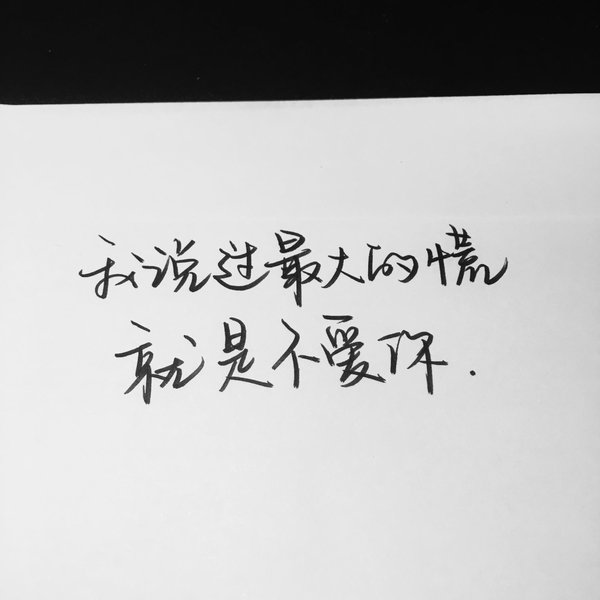 我说过最大的慌
就是不爱你.